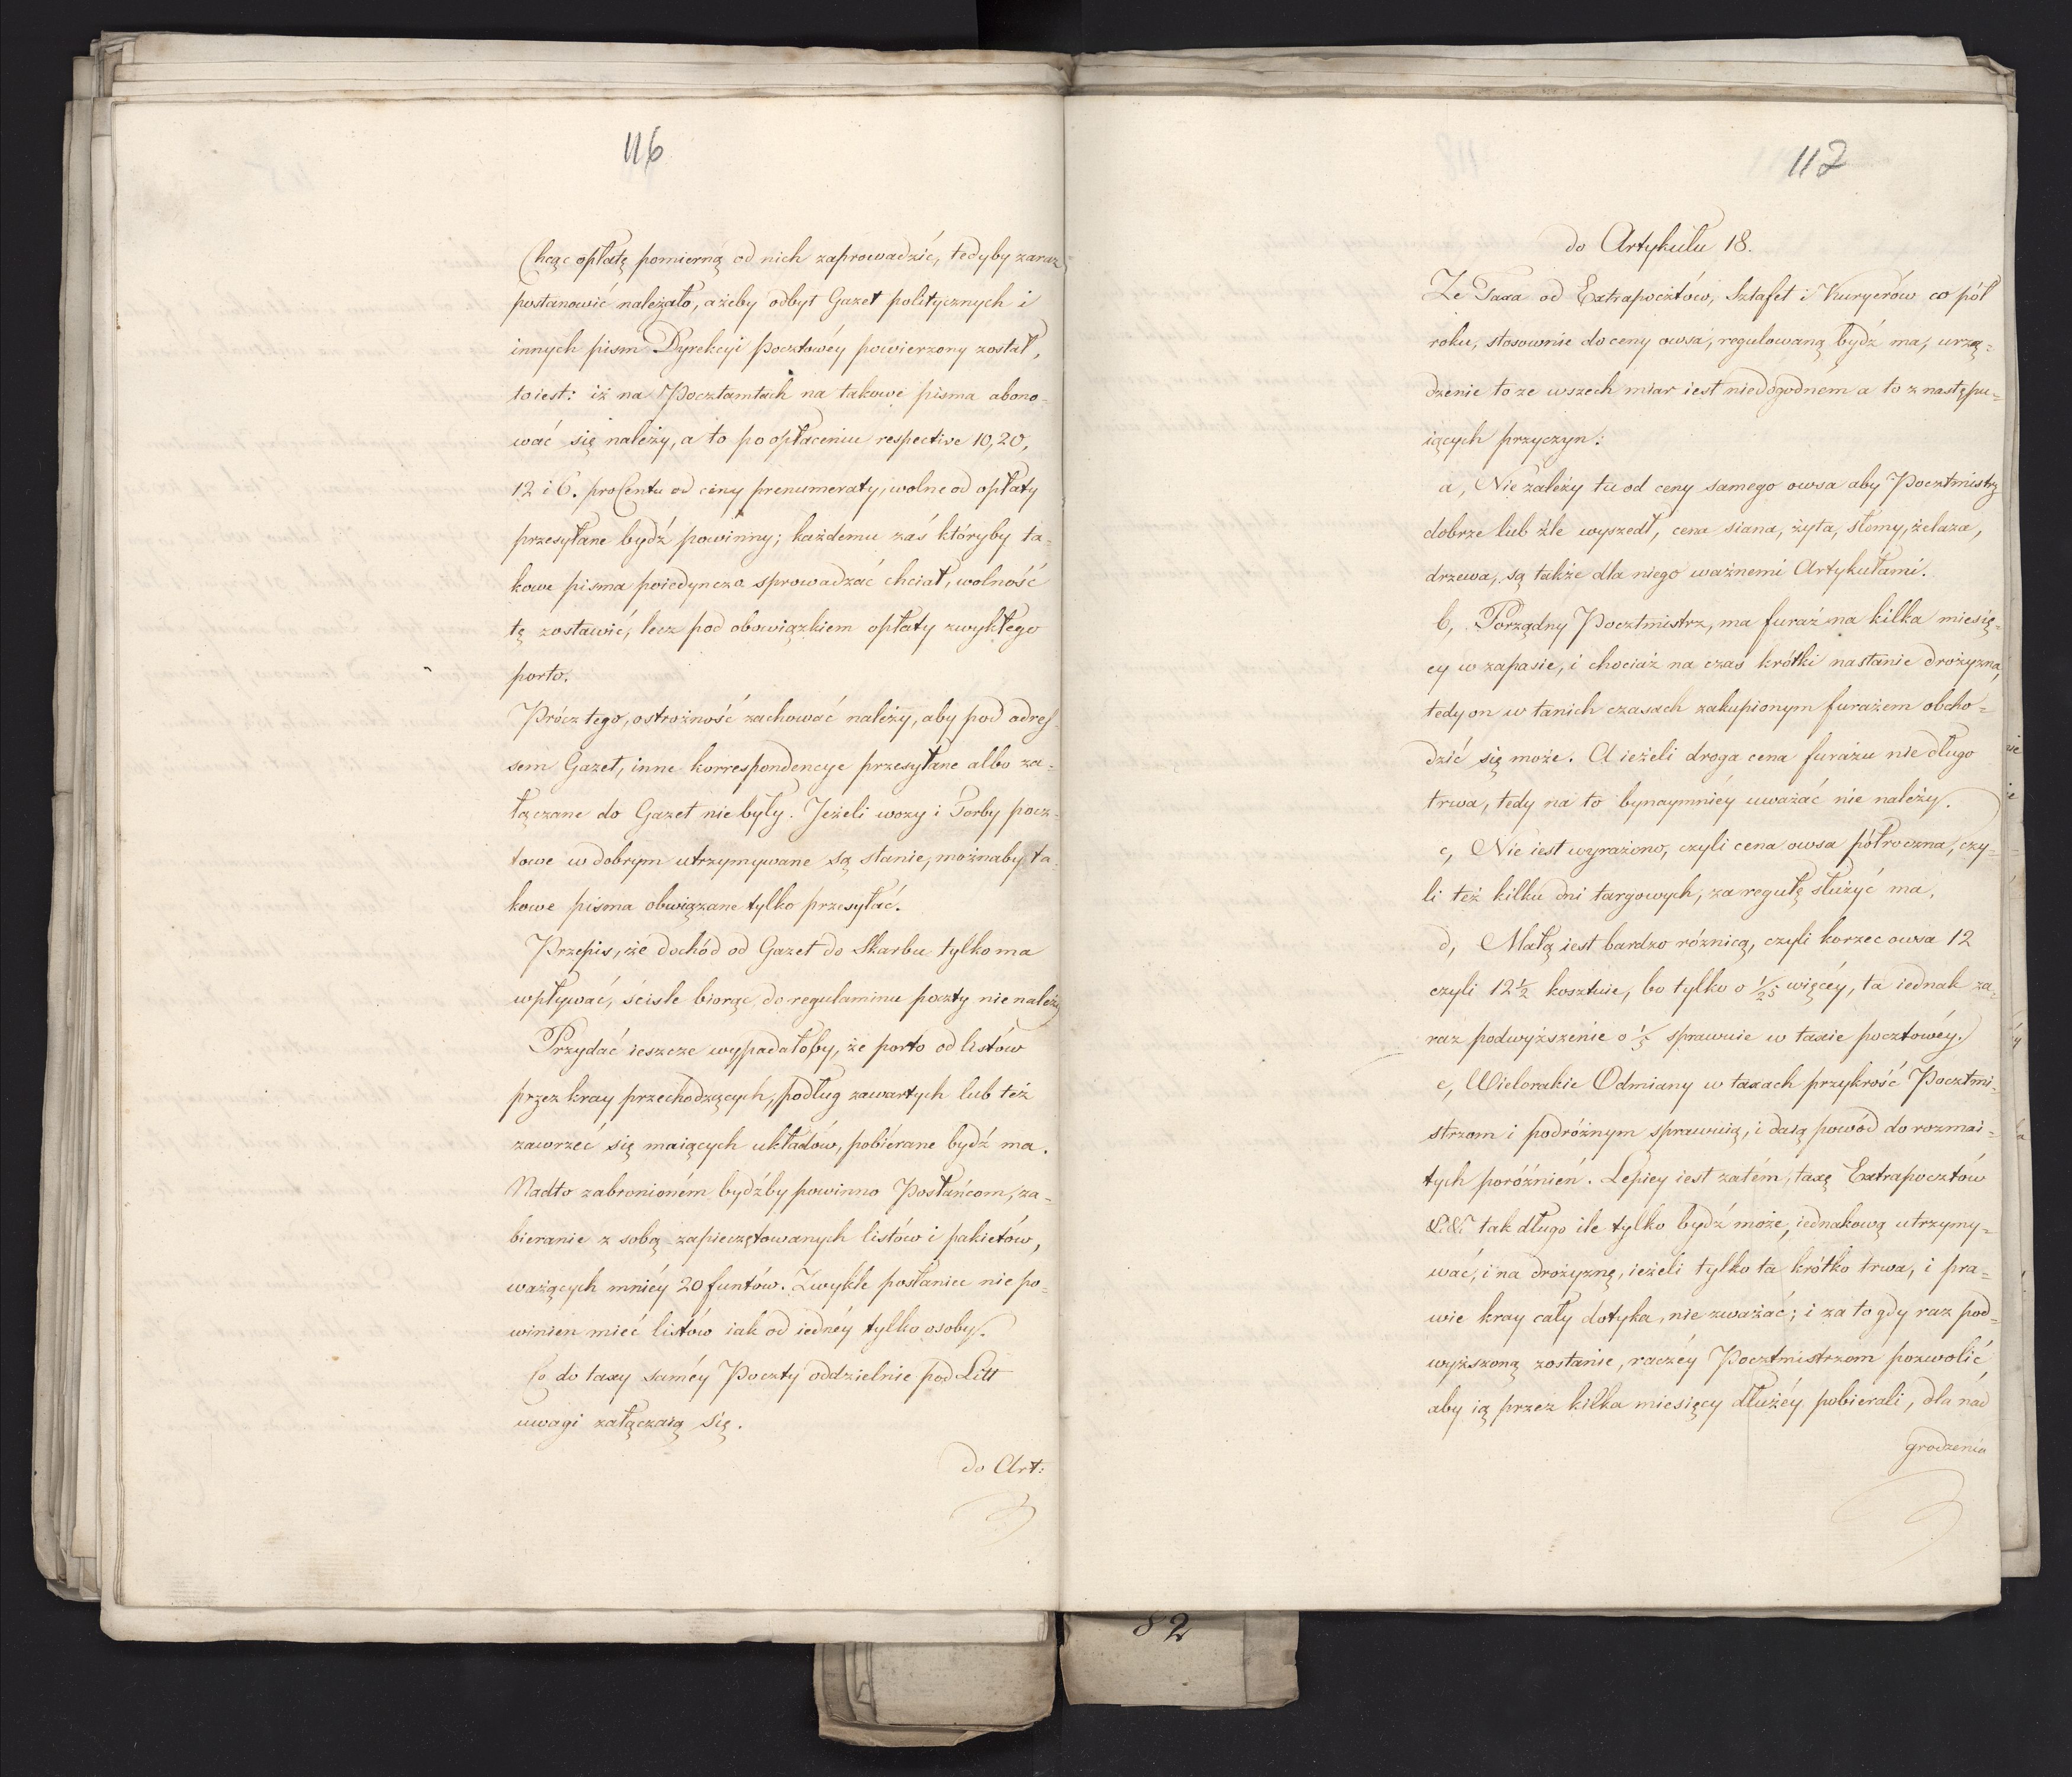 116
Chcąc opłatę pomierną od nich zaprowadzić, tedyby zaraz
postanowić należało, ażeby odbyt Gazet politycznych i
innych pism Dyrekcyi Pocztowéy powierzony został,
to iest: iż na Pocztamtach na takowe pisma abono-
wać się należy, a to po opłaceniu respective 10, 20,
12 i 6. proCentu od ceny prenumeraty, wolne od opłaty
przesyłane bydź powinny; każdemu zaś któryby ta-
kowe pisma poiedynczo sprowadzać chciał, wolność
tę zostawić, lecz pod obowiązkiem opłaty zwykłego
porto.
Prócz tego, ostrożność zachować należy, aby pod adres-
sem Gazet, inne korrespondencye przesyłane albo za-
łączane do Gazet nie były. Jeżeli wozy i Torby pocz-
towe w dobrym utrzymywane są stanie, możnaby ta-
kowe pisma obwiązane tylko przesyłać.
Przepis, że dochód od Gazet do Skarbu tylko ma
wpływać, ściśle biorąc do regulaminu poczty nie należy
Przydać ieszcze wypadałoby, że porto od listów
przez kray przechodzących, podług zawartych lub też
zawrzeć się maiących układów, pobiérane bydź ma.
Nadto zabronioném bydźby powinno Posłańcom, za-
bieranie z sobą zapieczętowanych listów i pakietów,
ważących mniéy 20 funtów. Zwykle posłaniec nie po-
winien mieć listów iak od iednéy tylko osoby.
Co do taxy saméy Poczty oddzielnie pod Litt
uwagi załączaią się.
do Art:
117
do Artykułu 18.
Ze Taxa od Extrapocztów, Sztafet i Kuryerów co pół
roku, stosownie do ceny owsa, regulowaną bydź ma, urzą-
dzenie to ze wszech miar iest niedogodném a to z następu-
iących przyczyn:
a, Nie zależy tu od ceny samego owsa aby Pocztmistrz
dobrze lub źle wyszedł, cena siana, żyta, słomy, żelaza,
drzewa, są także dla niego ważnemi Artykułami.
b, Porządny Pocztmistrz, ma furaż na kilka miesię-
cy w zapasie, i chociaż na czas krótki nastanie drożyzna,
tedy on w tanich czasach zakupionym furażem obcho-
dzić się może. A ieżeli droga cena furażu nie długo
trwa, tedy na to bynaymniéy uważać nie należy.
c, Nie iest wyrażono, czyli cena owsa półroczna, czy-
li też kilku dni targowych, za regułę służyć ma,
d, Małą iest bardzo różnicą, czyli korzec owsa 12
czyli 12 1/2 kosztuie, bo tylko o 1/25 więcéy, ta iednak za-
raz podwyższenie o 1/5 sprawuie w taxie pocztowéy.
e, Wielorakie Odmiany w taxach przykrość Pocztmi-
strzom i podróżnym sprawuią, i daią powód do rozmai-
tych poróżnień. Lepiey iest zatém, taxę Extrapocztów
&c&c tak długo ile tylko bydź może, iednakową utrzymy-
wać, i na drożyznę, ieżeli tylko ta krótko trwa, i pra-
wie kray cały dotyka, nie zważać; i za to gdy raz pod-
wyższoną zostanie, raczéy Pocztmistrzom pozwolić
aby ią przez kilka miesięcy dłużéy pobierali, dla nad
grodzenia
82